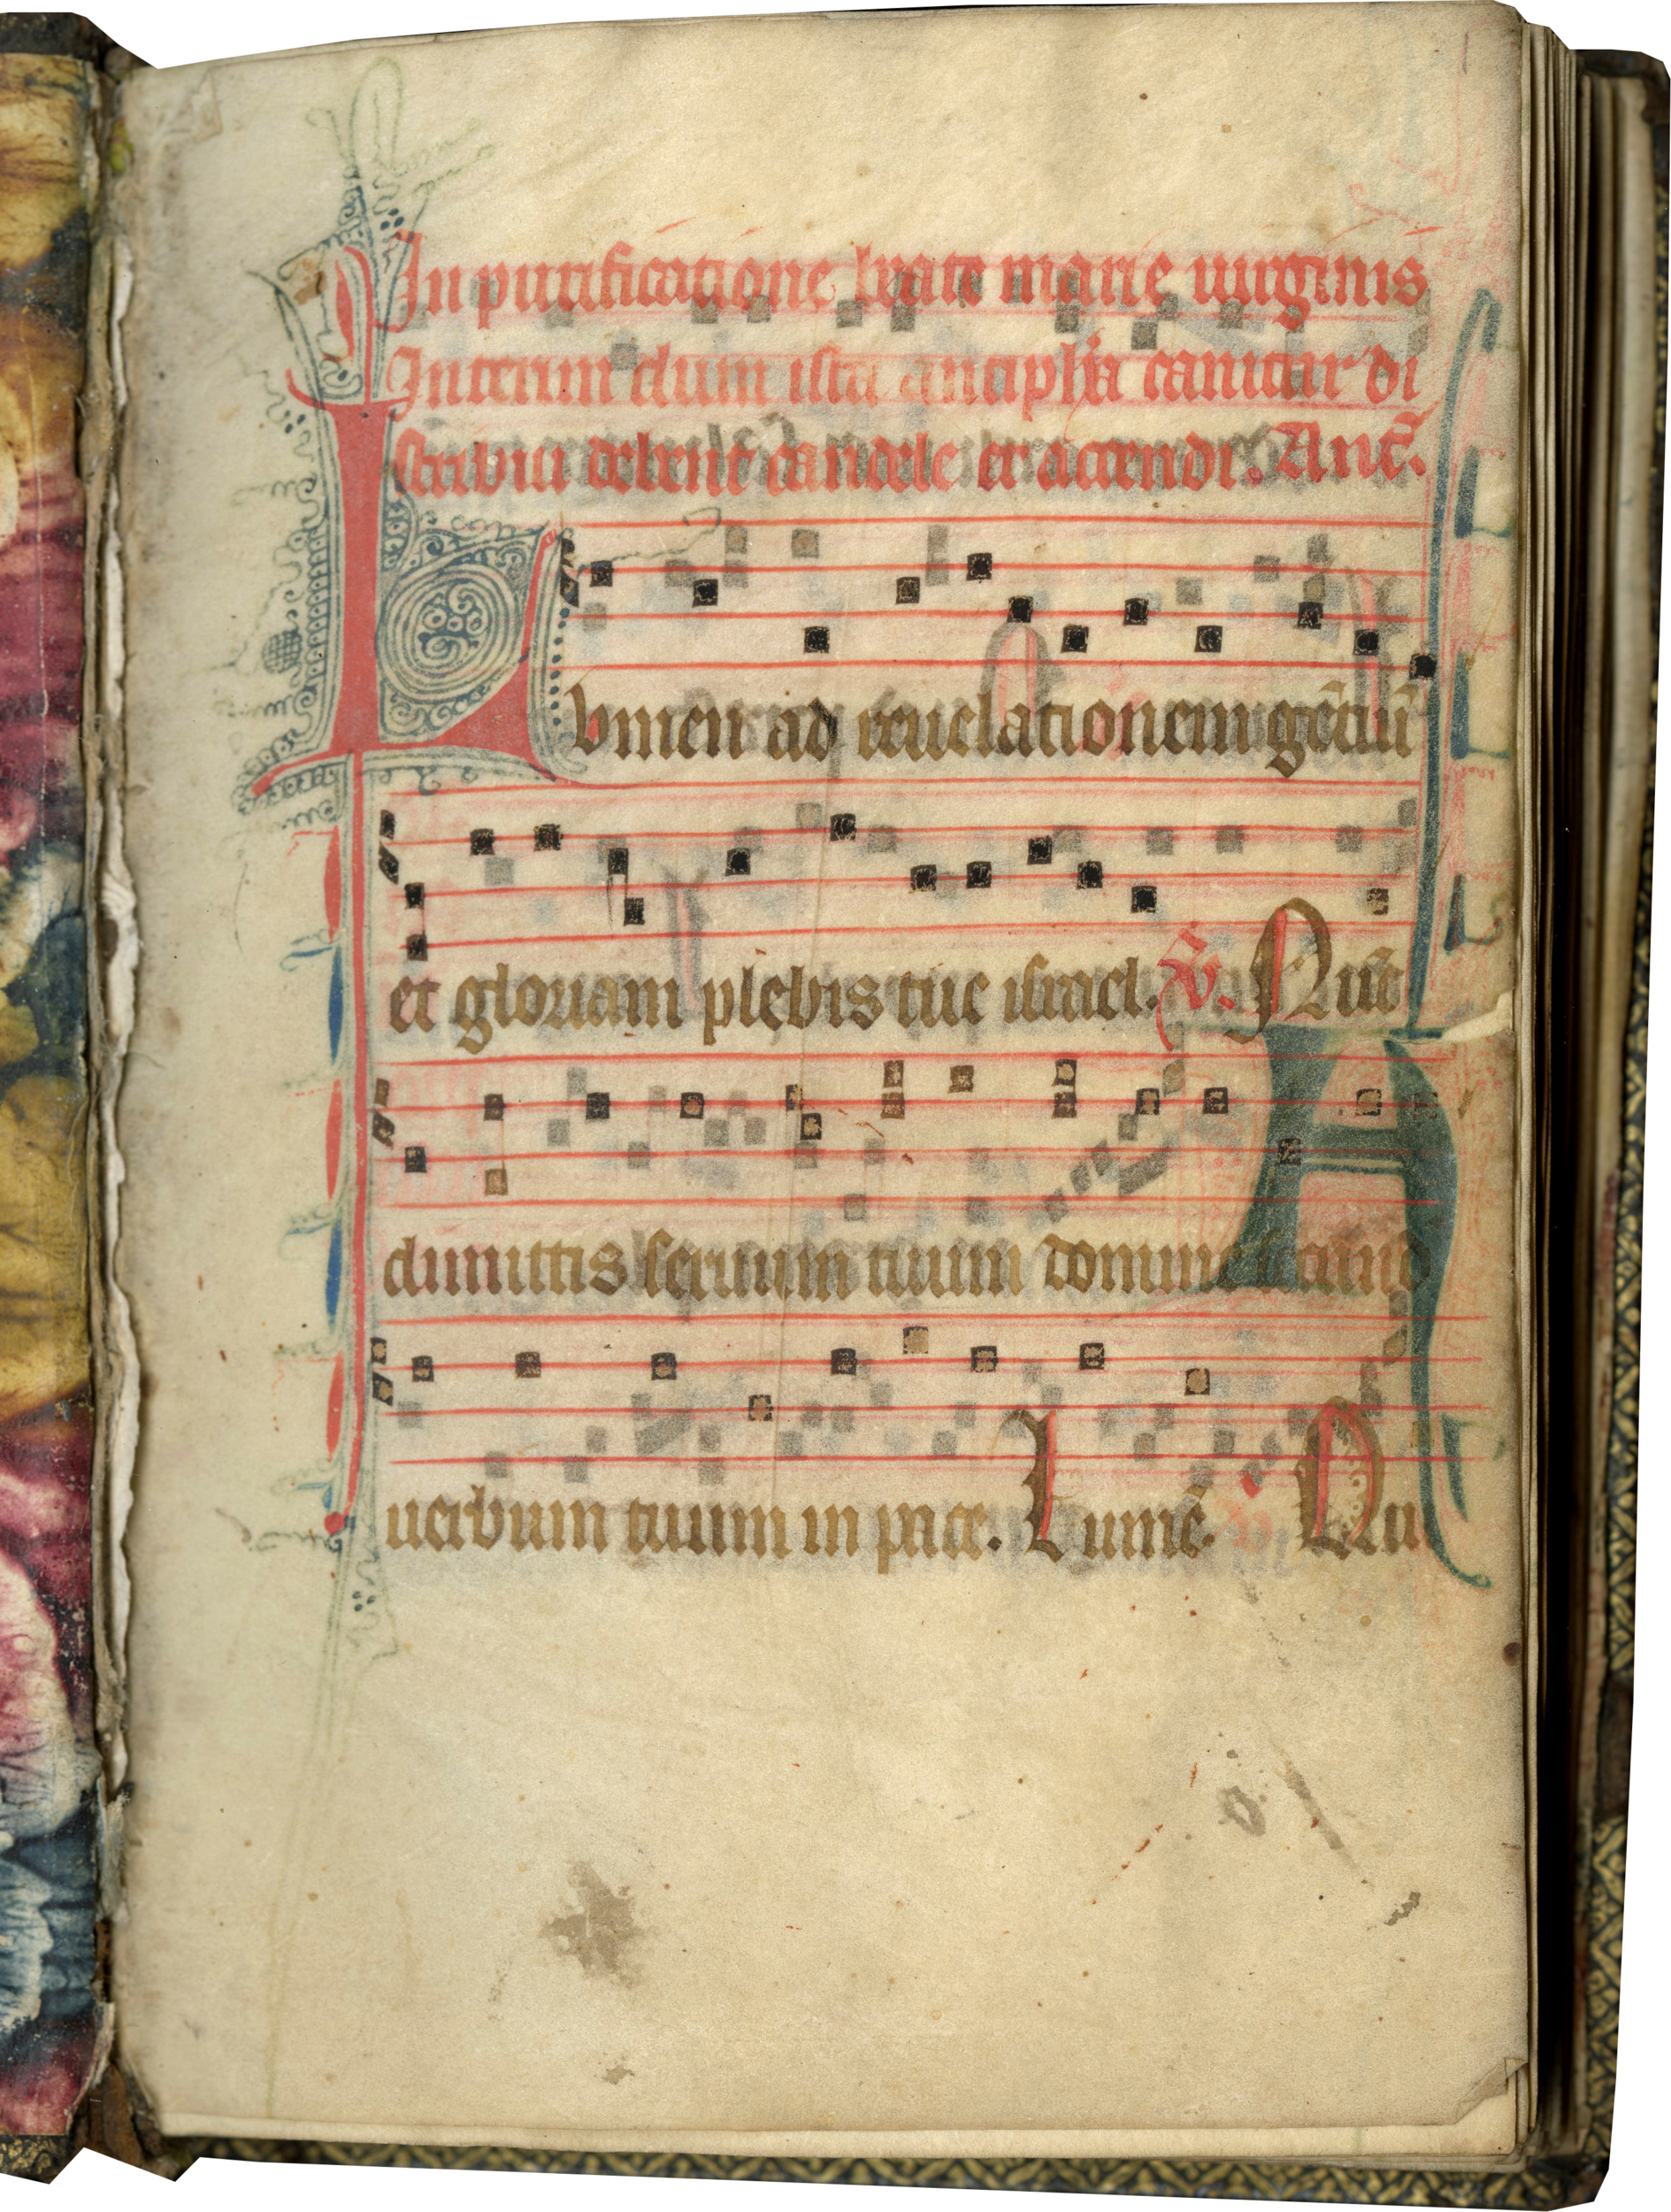 In purificatione beate marie uirginis
Interim dum ista antipha canitur di
stribui debent candele et accendi. Anc̄.
Lvmen ad reuelationem gētiū
et gloriam plebis tue israel. V̄. Nūc
dimittis seruum tuum domine secund
uerbum tuum in pace. Lumē. Nu